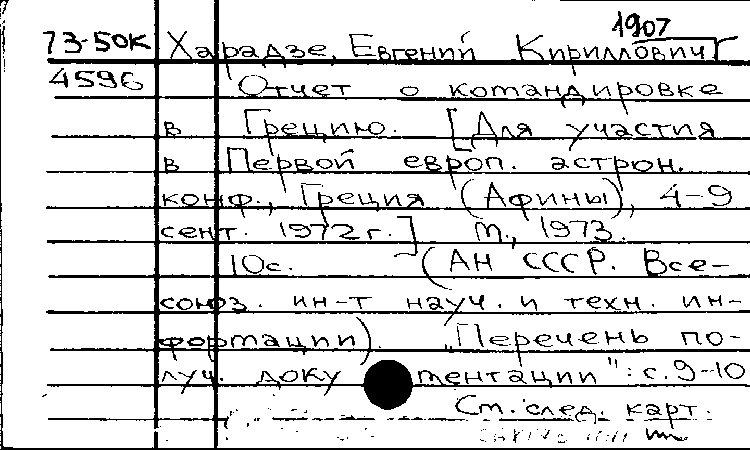 1907
73-50К Харадзе, Евгений Кириллович
4596 Отчет о командировке
в Грецию. [Для участия
в Первой европ. астрон.
конф., Греция (Афины), 4-9
сент. 1972г.] М., 1973.
10с. (АН СССР. Все-
союз. ин-т науч. и техн. ин-
формации). „Перечень по-
луч. документации": с.9-10
См. след. карт.